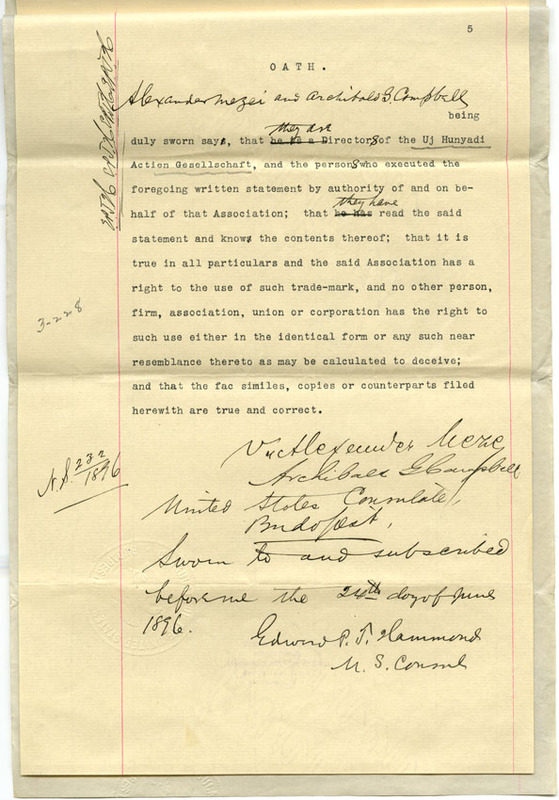 5
OATH.
Alexander Mezei and Archibald G. Campbell
being
they are
duly sworn says, that he is a Directors of the Uj Hunyadi
Action Gesellschaft, and the persons who executed the
foregoing written statement by authority of and on be-
they have
half of that Association; that he has read the said
statement and know the contents thereof; that it is
true in all particulars and the said Association has a
right to the use of such trade-mark, and no other person,
firm, association, union or corporation has the right to
such use either in the identical form or any such near
resemblance thereto as may be calculated to deceive;
and that the fac similes, copies or counterparts filed
herewith are true and correct.
3-228
N.S. 232/1896
Alexander Mezei
Archibald G Campbell
United States Consulate,
Budapest,
Sworn to and subscribed
before me the 24th day of June
1896.
Edward P. T. Hammond
U. S. Consul